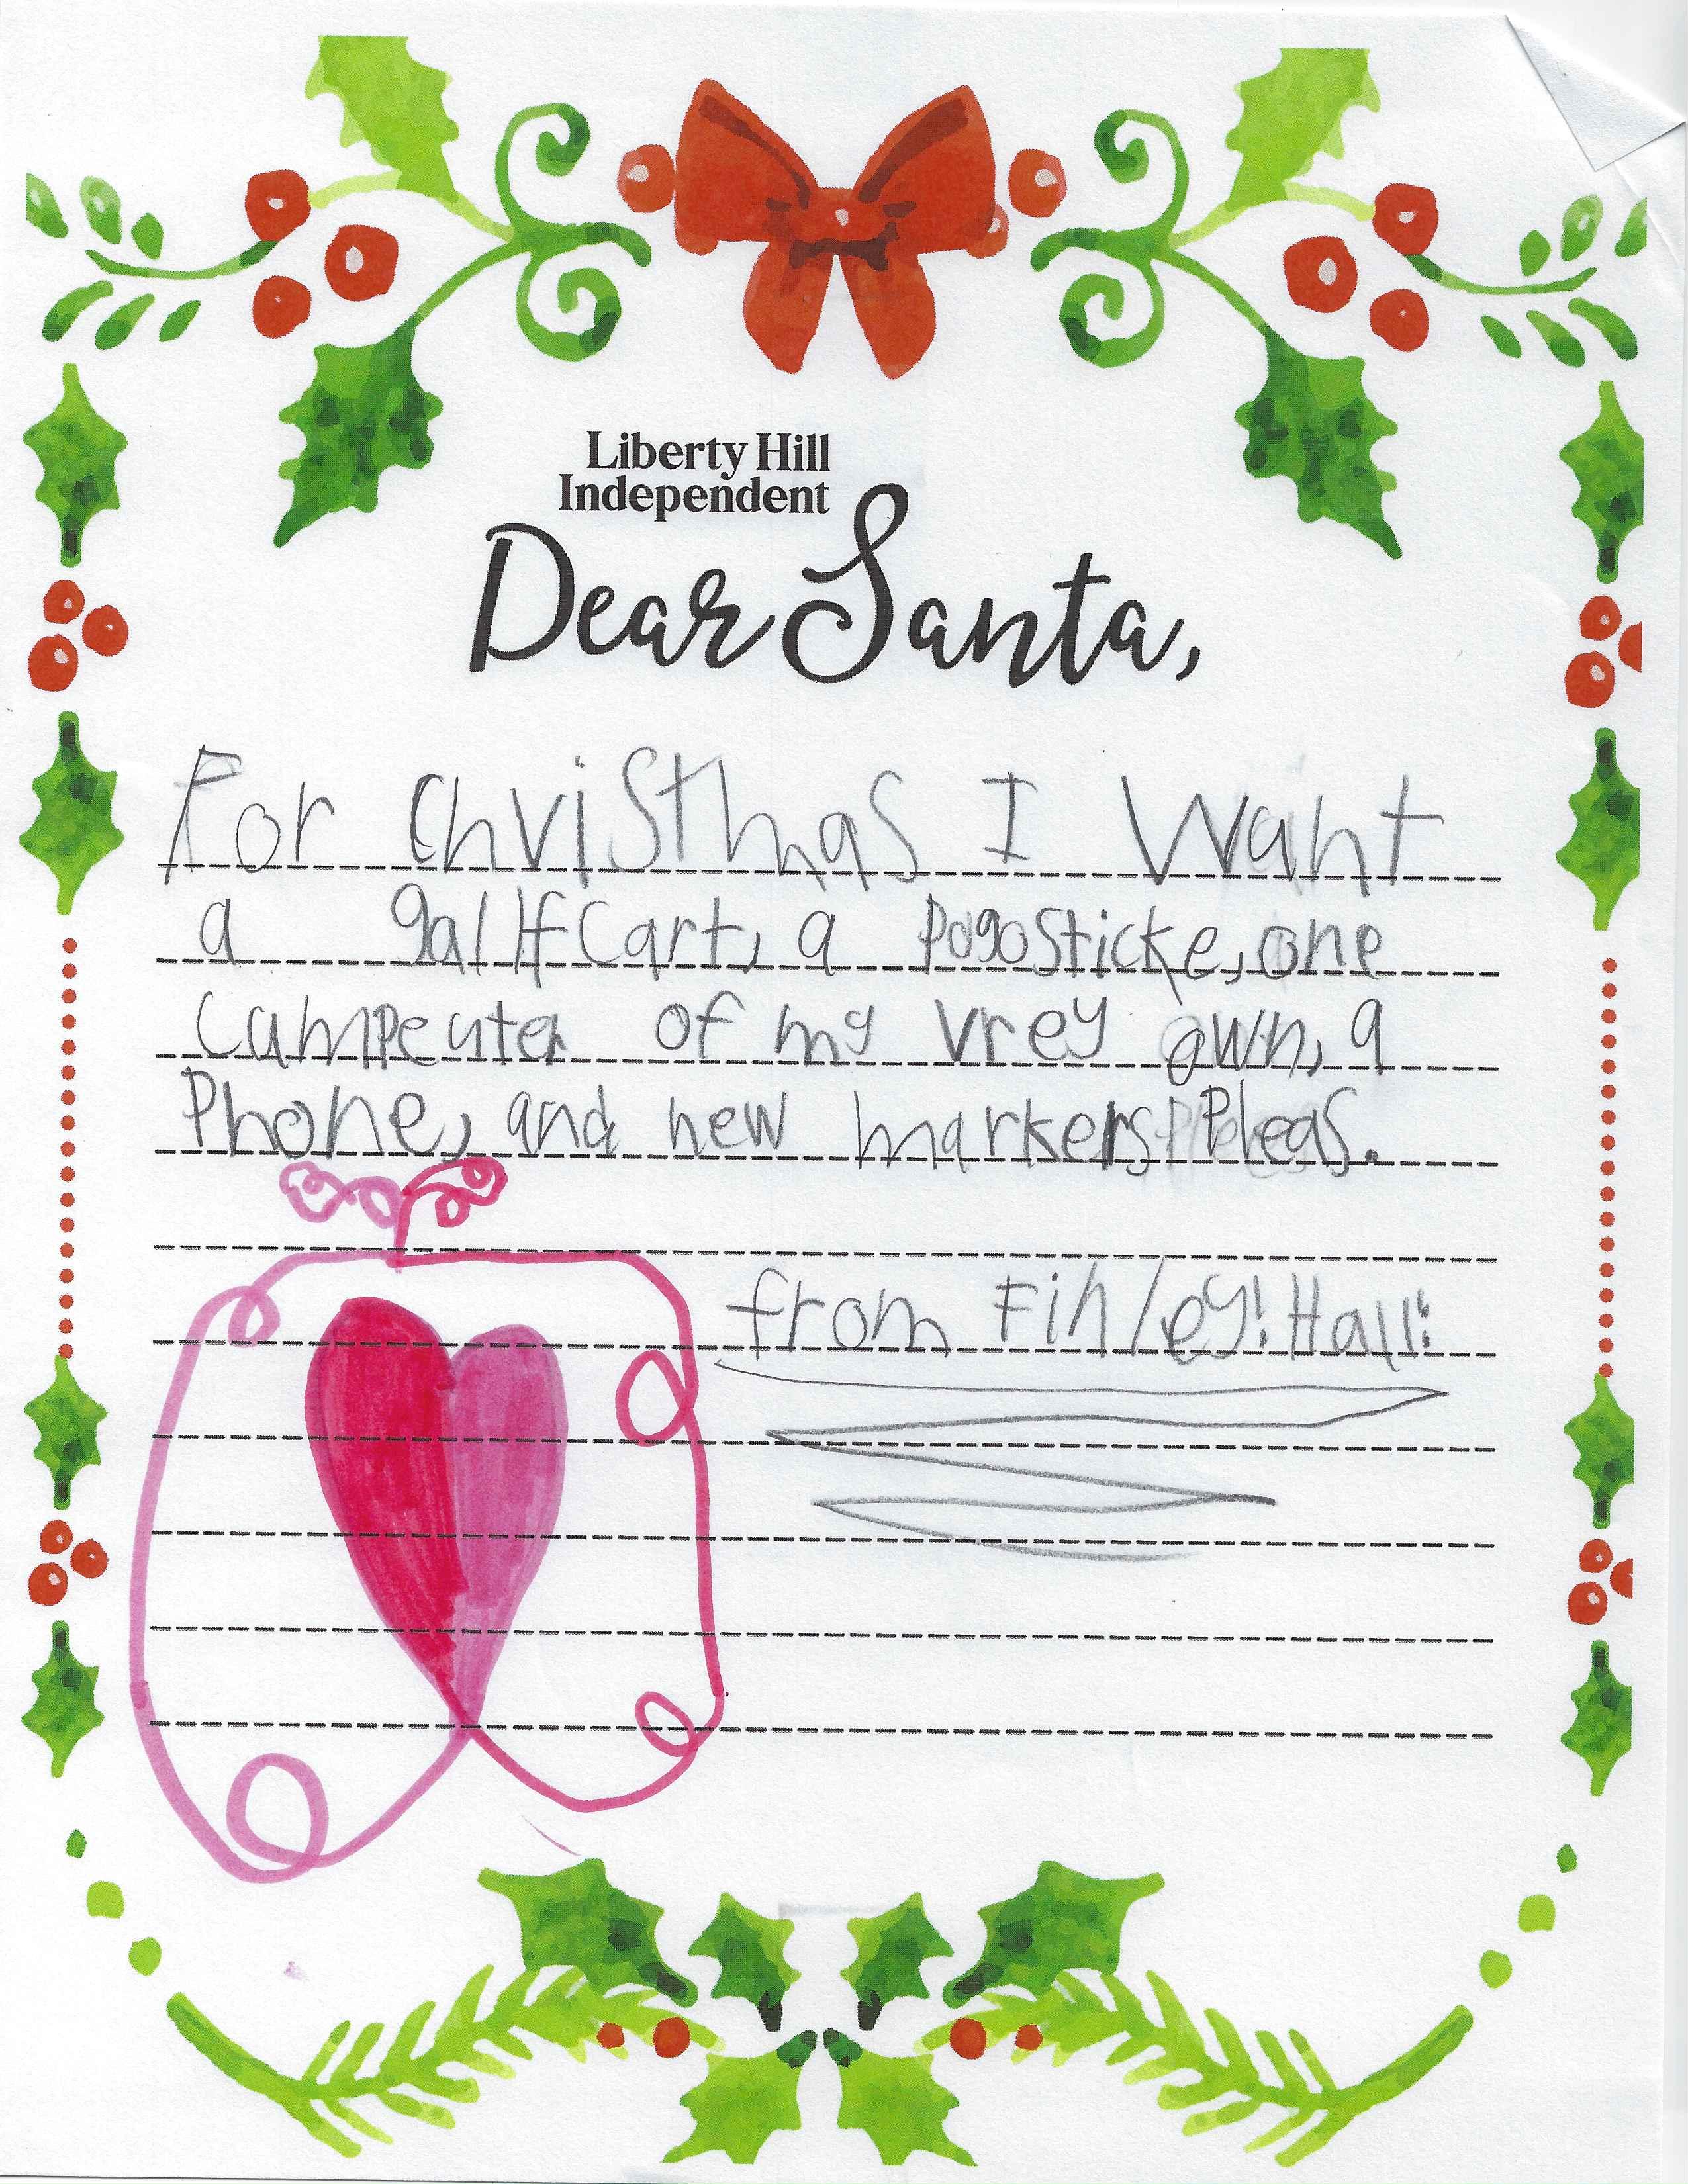 Liberty Hill
Independent
Dear Santa,
For Christmas I Want
a gallf Cart, a PogoSticke, one
Campeuter of my vrey own, a
Phone, and new markers Pleas.
from Finley! Hall!